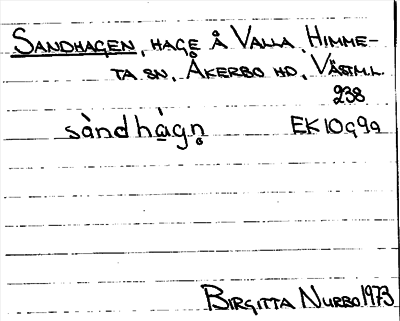 SANDHAGEN, HAGE Å VALLA, HIMME-
TA SN, ÅKERBO HD, VÄSTM.L.
238
sàndhà̱gn̥ EK10g9a
BIRGITTA NURBO 1973